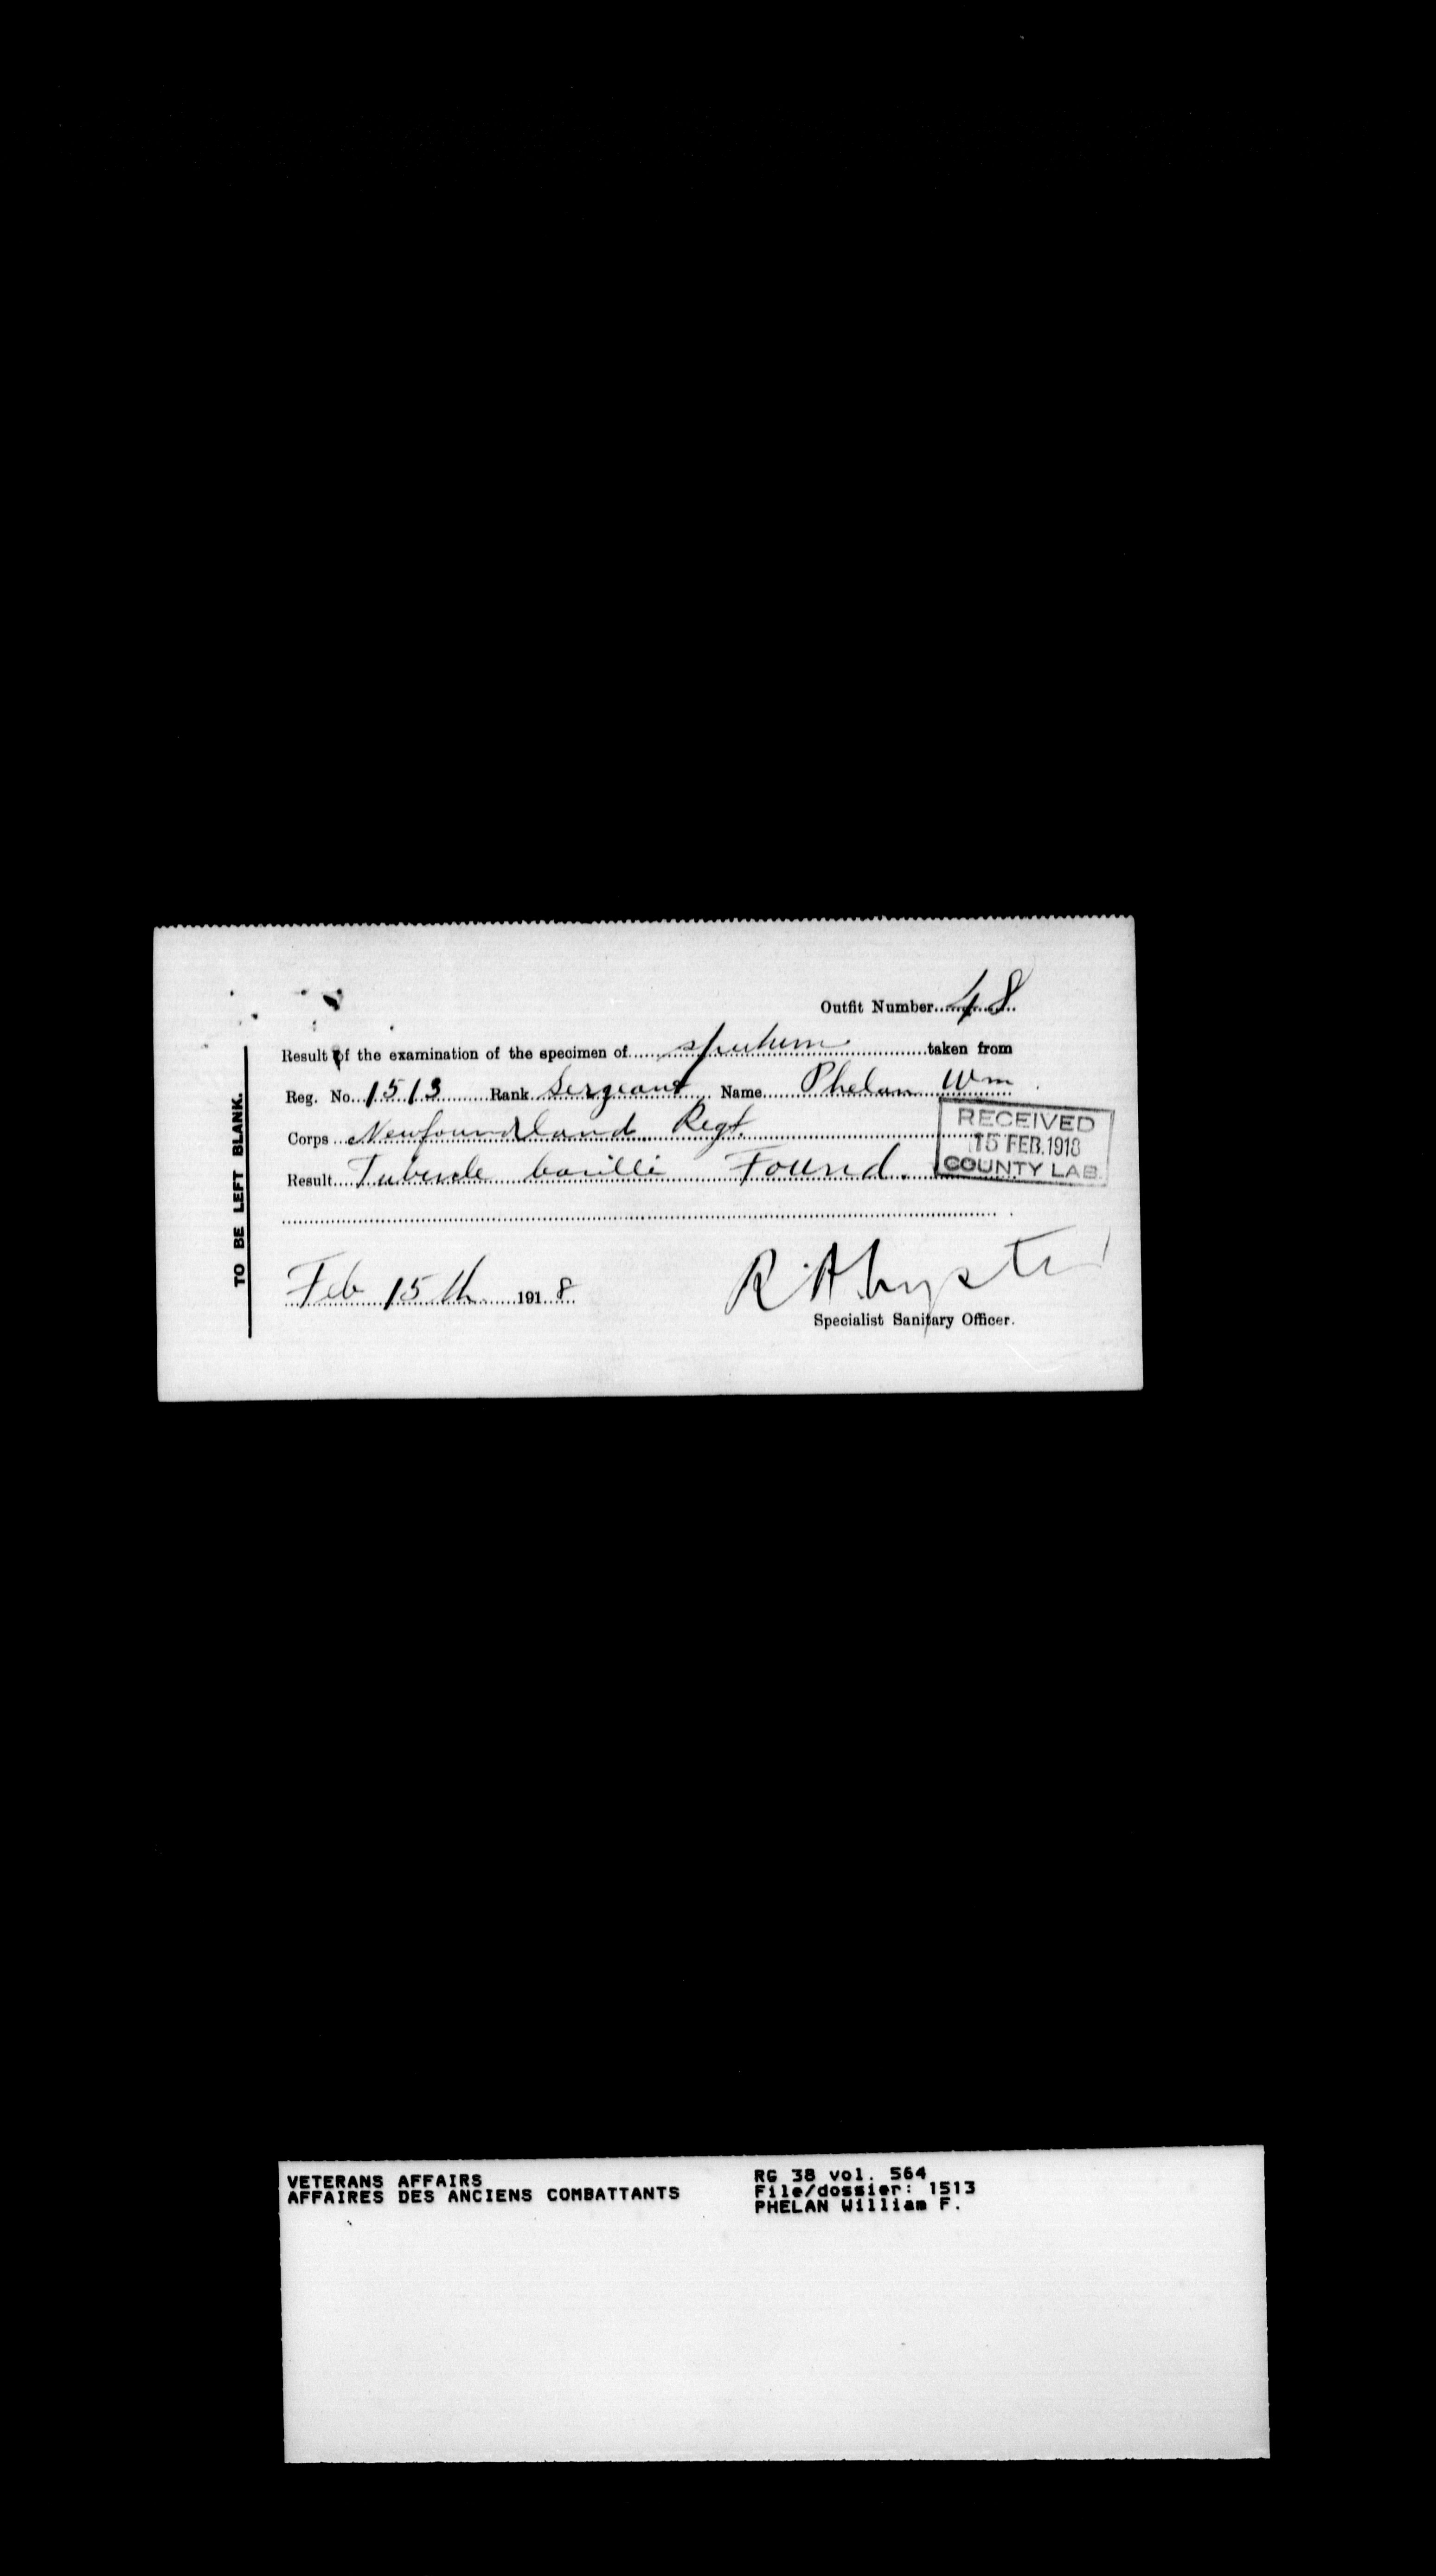 Outfit Number 48
Result of the examination of the specimen of sputum taken from
Reg. No. 1513 Rank Sergeant Name Phelan Wm
Corps Newfoundland Regt.
Result Tubercle bacilli Found.
RECEIVED
15 FEB. 1918
COUNTY LAB.
Feb 15th 1918
Specialist Sanitary Officer.
TO BE LEFT BLANK.
VETERANS AFFAIRS
AFFAIRES DES ANCIENS COMBATTANTS
RG 38 vol. 564
File/dossier: 1513
PHELAN William F.